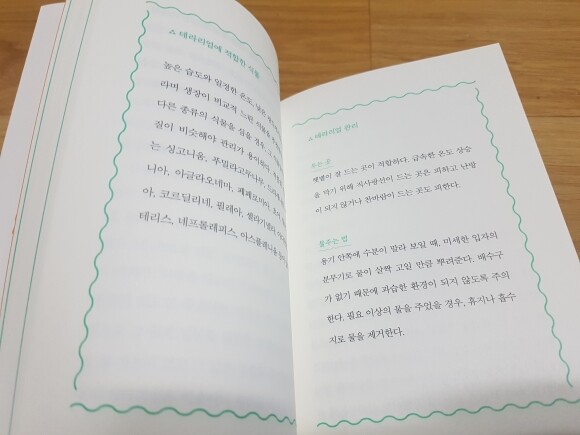 △ 테라리엄에 적합한 식물
높은 습도와 일정한 온도, 낮은
라며 생장이 비교적 느린 식물을
다른 종류의 식물을 심을 경우,
질이 비슷해야 관리가 용이하다.
는 싱고니움, 푸밀라고무나무,
니아, 아글라오네마, 페페로미아,
아, 코르딜리네, 필레아, 셀라기넬라,
테리스, 네프롤레피스, 아스플레니움
△ 테라리엄 관리
두는 곳
햇볕이 잘 드는 곳이 적합하다. 급속한 온도 상승
을 막기 위해 직사광선이 드는 곳은 피하고 난방
이 되지 않거나 찬바람이 드는 곳도 피한다.
물주는 법
용기 안쪽에 수분이 말라 보일 때, 미세한 입자의
분무기로 물이 살짝 고일 만큼 뿌려준다. 배수구
가 없기 때문에 과습한 환경이 되지 않도록 주의
한다. 필요 이상의 물을 주었을 경우, 휴지나 흡수
지로 물을 제거한다.